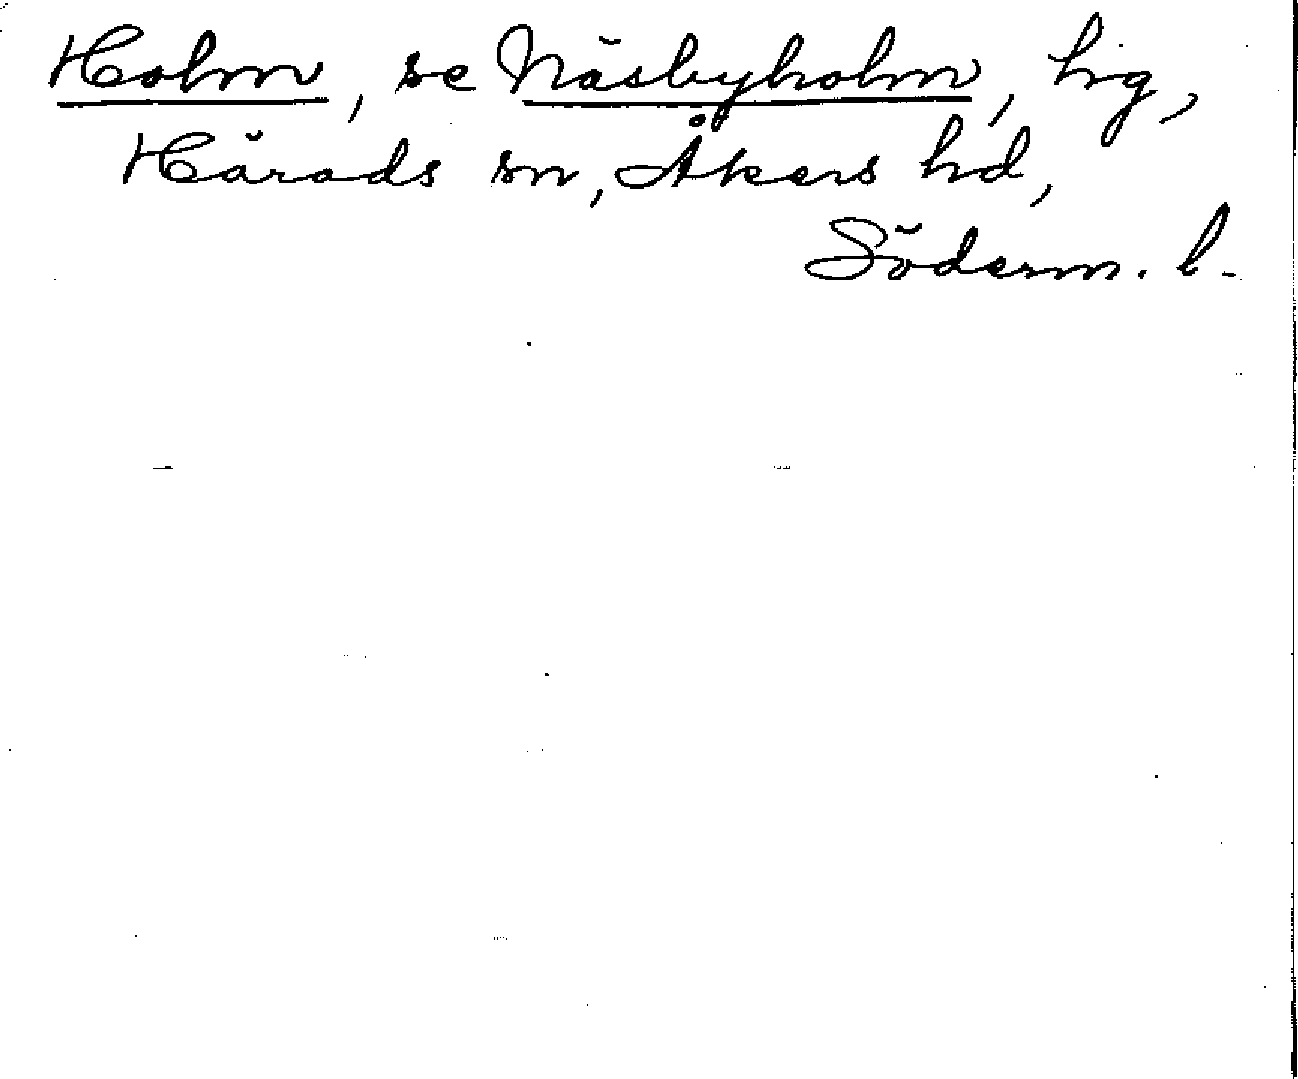 Holm, se Näsbyholm, hrg,
Härads sn, Åkers hd,
Söderm. l.